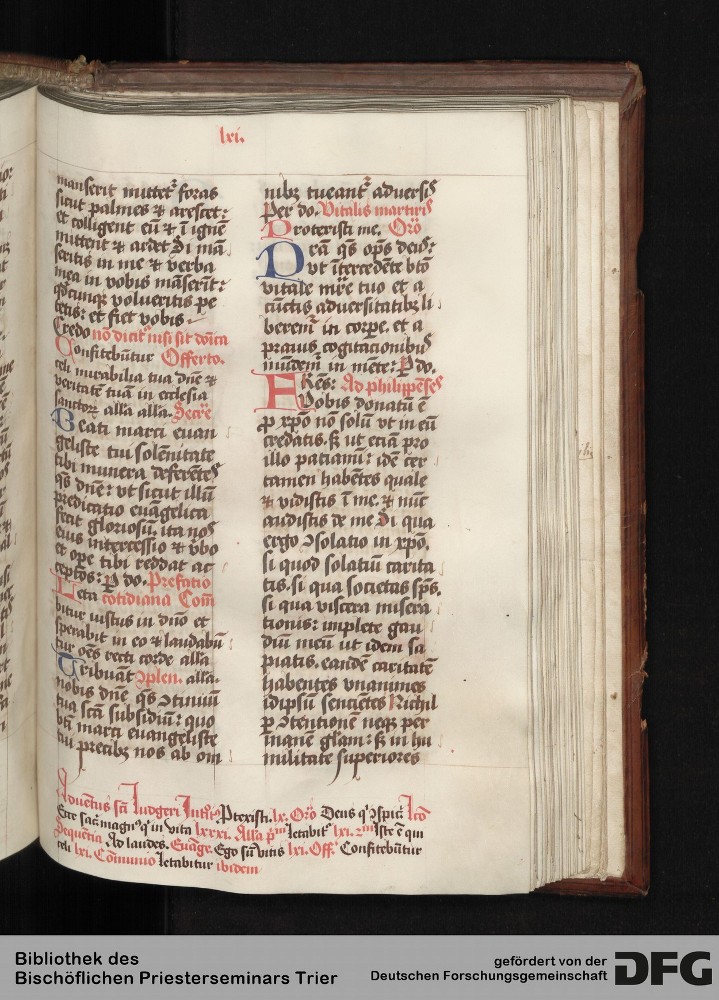 lxi.
manserit mittet᷑ foras
sicut palmes ⁊ arescet:
et colligent eū ⁊ ī ignē
mittent ⁊ ardet Si mā
seritis in me ⁊ verba
mea in vobis māserīt:
qd̓cunqꝫ volueritis pe
tetis: et fiet vobis.
Credo nō dicit᷑ nisi sit dōica
Confitebūtur Offerto.
celi mirabilia tua dn̄e ⁊
veritatē tuā in ecclesia
sanctoꝝ alla alla. Secre᷑
Beati marci euan
geliste tui solēnitate
tibi munera deferētes
qs̄ dn̄e: vt sicut illū
predicatio euāgelica
fecit gloriosū. ita nos
eius intercessio ⁊ v̓bo
et ope tibi reddat ac
ceptos: ꝑ do. Prefatio
Leta cotidiana Com̄
bitur iustus in dn̄o et
sperabit in eo ⁊ laudabū
tur oēs recti corde alla
Tribuāt ꝯplen. alla.
nobis dn̄e qs̄ ꝯtinuū
tua scā subsidiū: quo
bti̅ marci euangeliste
tui precibꝫ nos ab om
nibꝫ tueant᷑ aduersis
Per do. Vitalis martiris
Protexisti me. Oro̅
Pr̄a qs̄ op̄s deus:
vt ītercedēte bt̄o
vitale mr̄e tuo et a
cūctis aduersitatibꝫ li
berem᷑ in corꝑe. et a
prauis cogitacionibus
mūdem᷑ in mēte: ꝑ do.
Fr̄es: Ad philippēses
Vobis donatū ē
ꝓ xp̄o nō solū vt in eū
credatis. sꝫ ut eciā pro
illo patiamī: idē cer
tamen habētes quale
⁊ vidistis ī me. ⁊ nūc
audistis de me Si qua
ergo ꝯsolatio in xp̄o.
si quod solatiū carita
tis. si qua societas sp̄s.
si qua viscera misera
tionis: implete gau
diū meū ut idem sa
piatis. eandē caritatē
habentes vnanimes
idip̄su sencietes Nichil
ꝑ ꝯtentionē neqꝫ per
inanē glam: sꝫ in hu
militate superiores
Aduētus sc̄i ludgeri Intr᷑. Ptexisti. lx. Oro̅ Deus q̓
Ecce sac̓. magn⁹ q̓ in vita lxxxi. Alla p̓m letabit᷑ lxi. 2m Iste ē qui
Sequētia Ad laudes. Euāge. Ego sū vitis lxi. Off. Confitebūtur
celi lxi. Cōmunio letabitur ibidem
Bibliothek des
Bischöflichen Priesterseminars Trier
gefördert von der
Deutschen Forschungsgemeinschaft
DFG